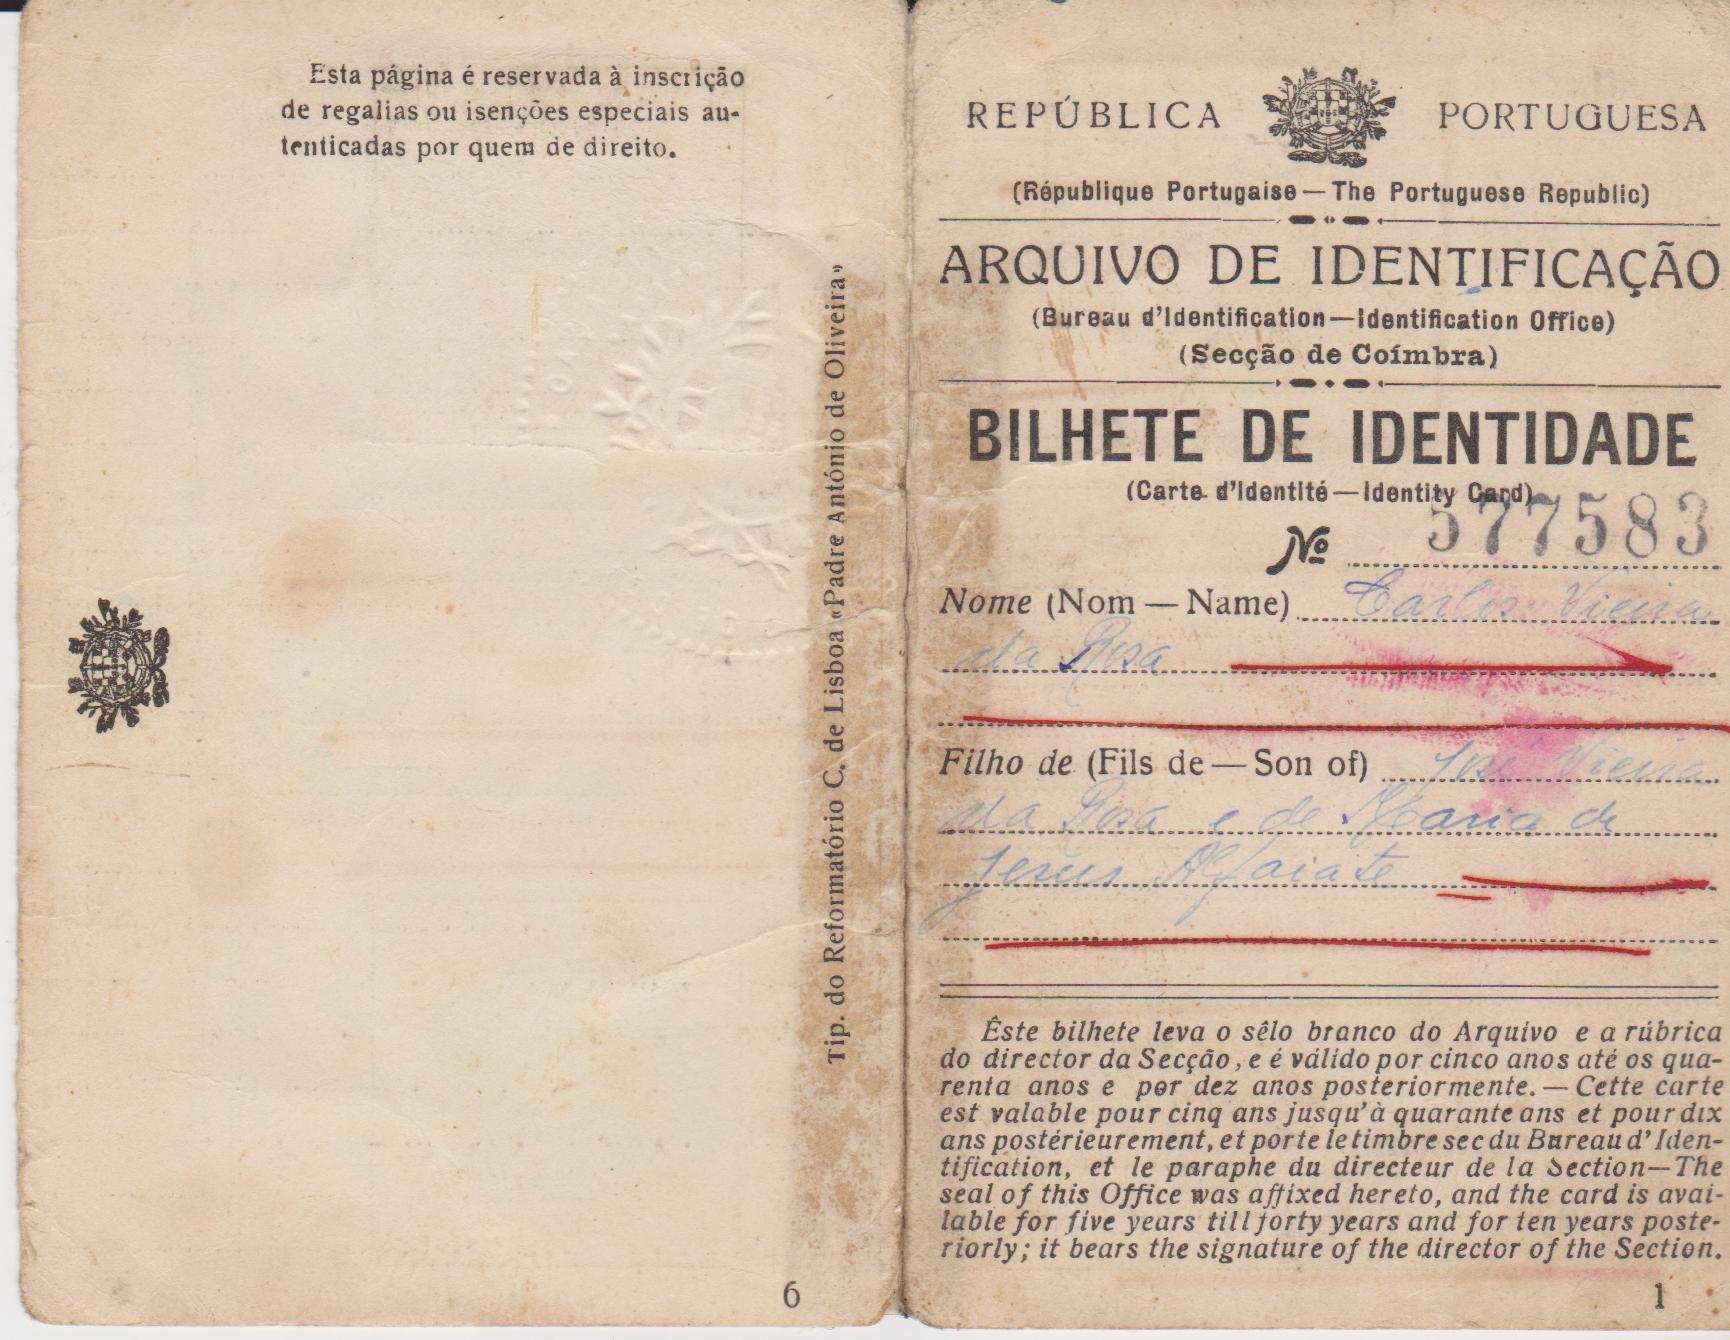 Esta página é reservada à inscrição
de regalias ou isenções especiais au-
tenticadas por quem de direito.
Tip. do Reformatório C. de Lisboa «Padre António de Oliveira»
6
REPÚBLICA PORTUGUESA
(République Portugaise — The Portuguese Republic)
ARQUIVO DE IDENTIFICAÇÃO
(Bureau d'Identification—Identification Office)
(Secção de Coímbra)
BILHETE DE IDENTIDADE
(Carte d'Identité — Identity Card)
Nº 577583
Nome (Nom — Name) Carlos Vieira
da Rosa
Filho de (Fils de — Son of) José Vieira
da Rosa e de Maria de
Jesus Alfaiate
Êste bilhete leva o sêlo branco do Arquivo e a rúbrica
do director da Secção, e é válido por cinco anos até os qua-
renta anos e por dez anos posteriormente. — Cette carte
est valable pour cinq ans jusqu'à quarante ans et pour dix
ans postérieurement, et porte le timbre sec du Bureau d'Iden-
tification, et le paraphe du directeur de la Section—The
seal of this Office was affixed hereto, and the card is avai-
lable for five years till forty years and for ten years poste-
riorly; it bears the signature of the director of the Section.
1